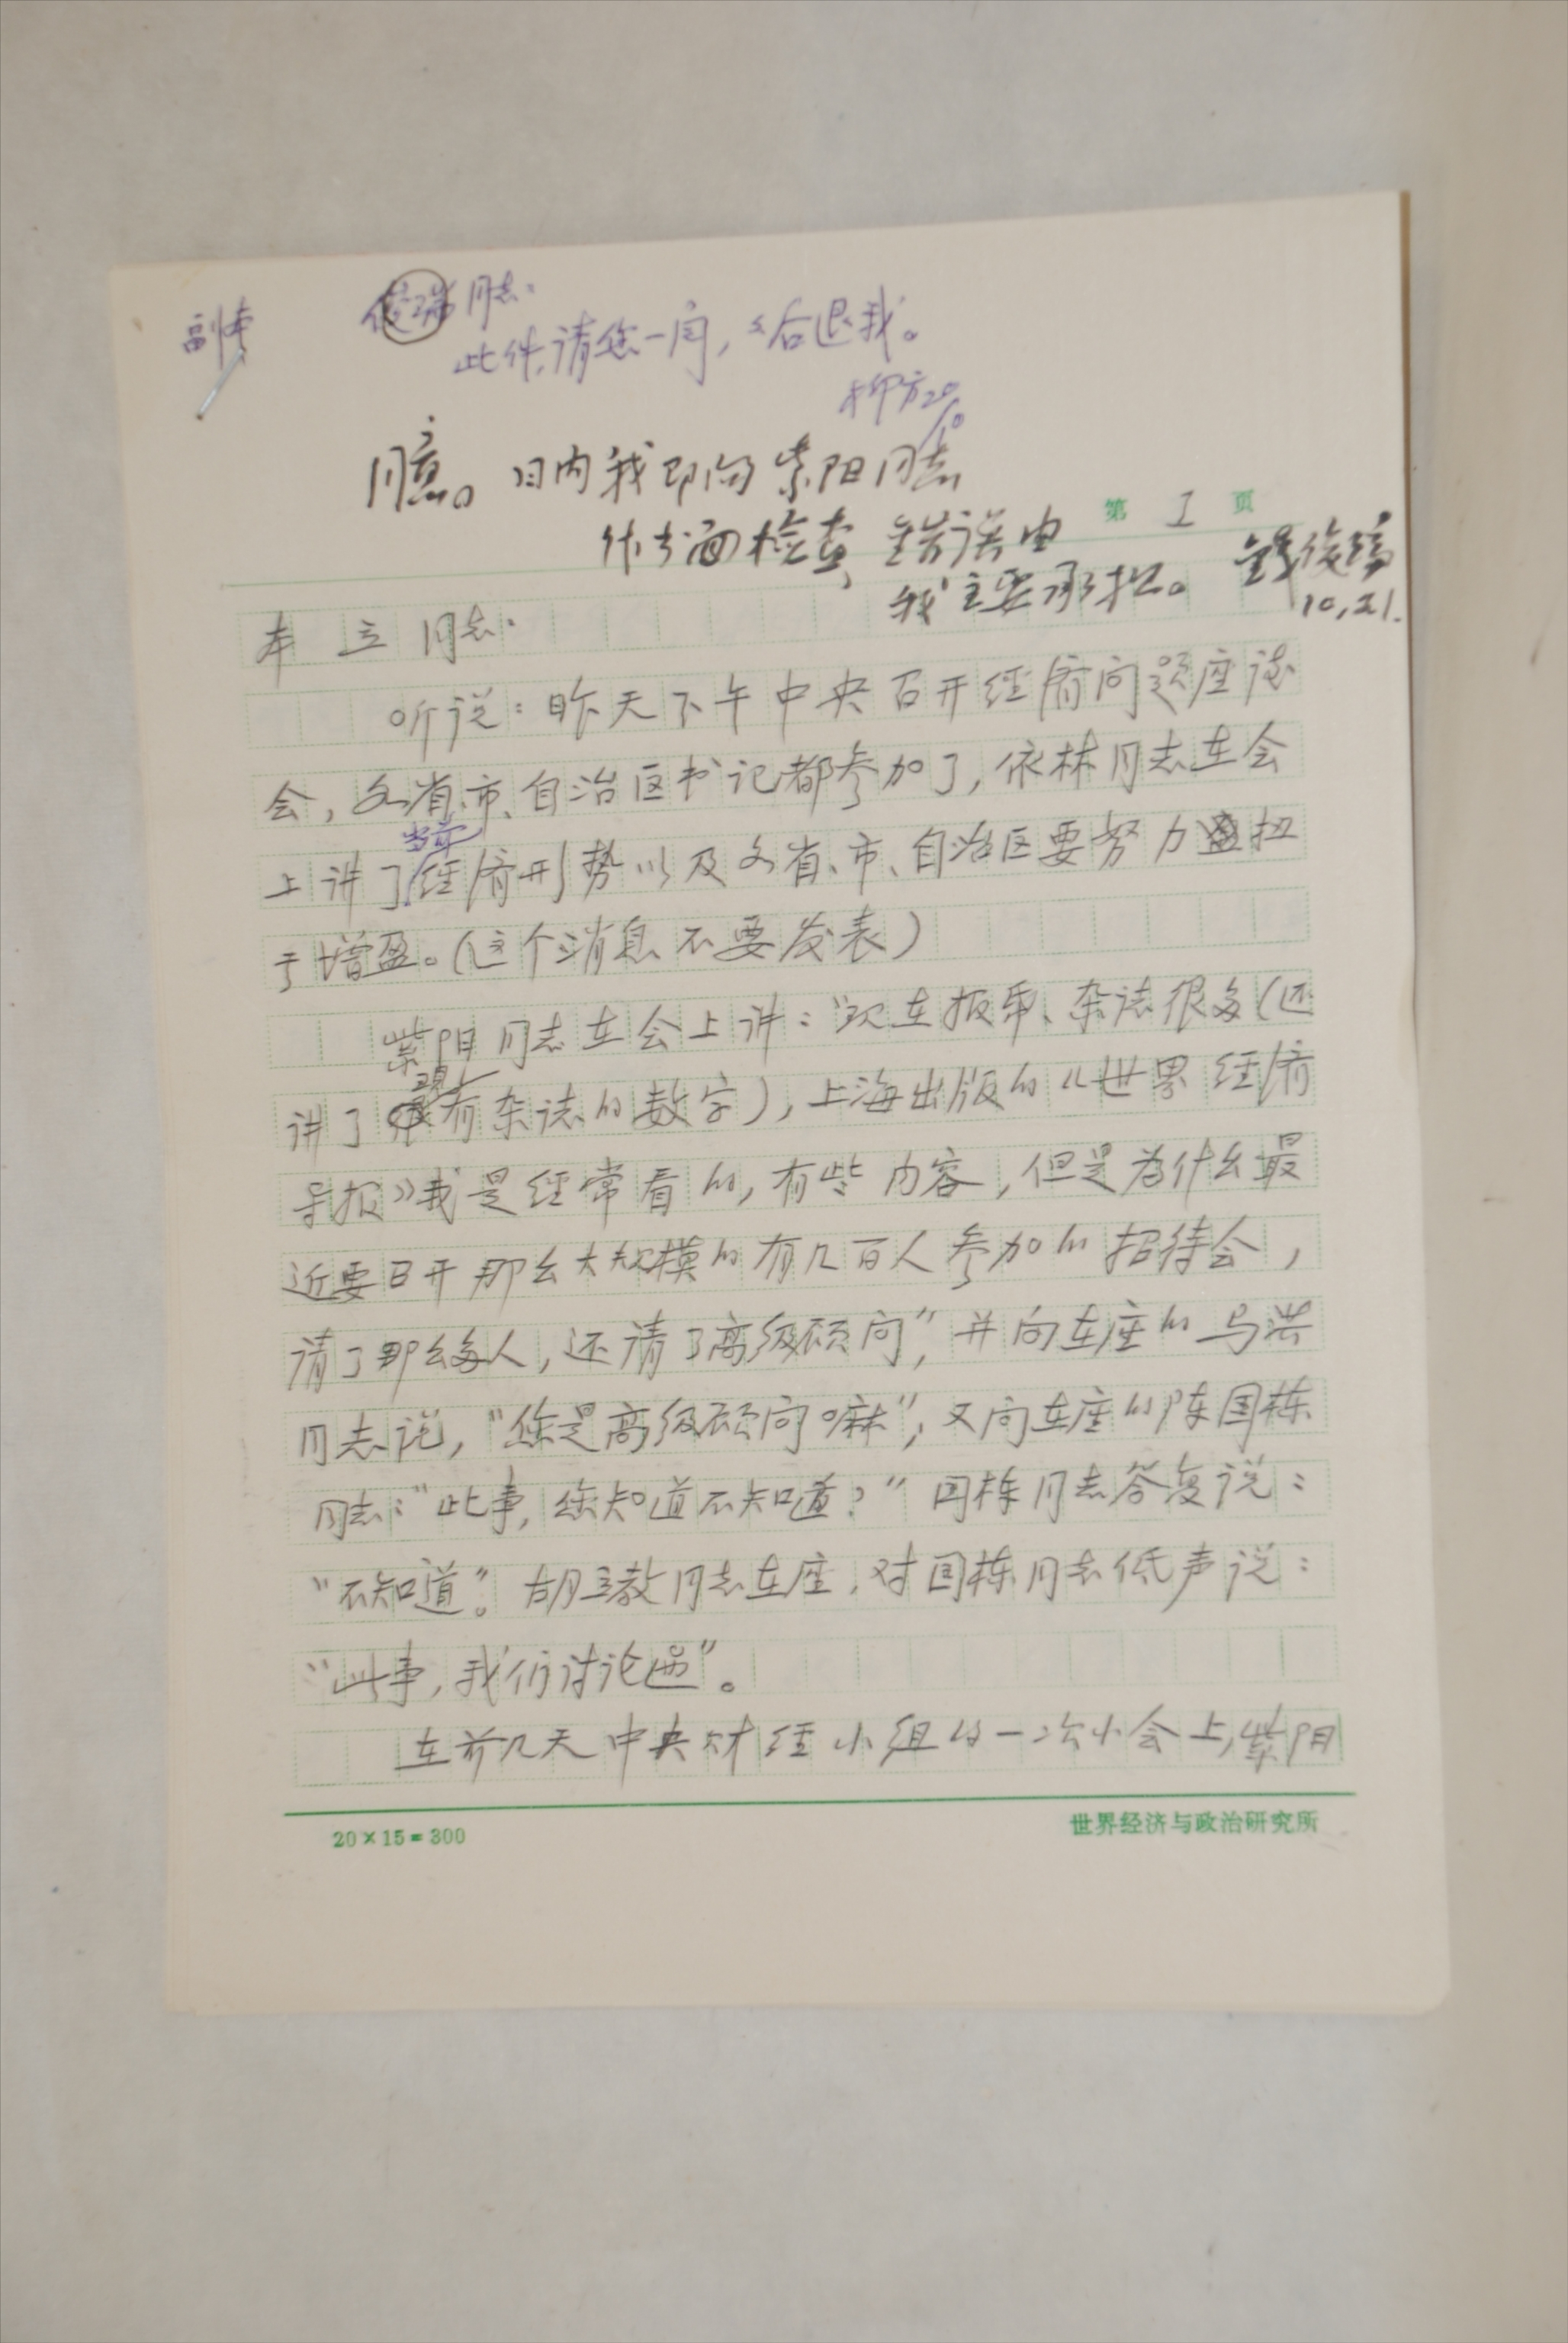 副本
俊瑞同志：
此件，请您一阅，阅后退我。
柳方20/10
同意。日内我即向紫阳同志
作书面检查，错误由
我主要承担。 钱俊瑞
10,21.
第 1 页
本立同志：
听说：昨天下午中央召开经济问题座谈
会，各省、市、自治区书记都参加了，依林同志在会
上讲了当前经济形势以及各省、市、自治区要努力扭
亏增盈。（这个消息不要发表）
紫阳同志在会上讲：“现在报纸、杂志很多（还
讲了现有杂志的数字），上海出版的《世界经济
导报》我是经常看的，有些内容，但是为什么最
近要召开那么大规模的有几百人参加的招待会，
请了那么多人，还请了高级顾问”，并向在座的马洪
同志说，“您是高级顾问嘛”，又向在座的陈国栋
同志：“此事，您知道不知道？”国栋同志答复说：
“不知道”。胡立教同志在座，对国栋同志低声说：
“此事，我们讨论过”。
在前几天中央财经小组的一次小会上，紫阳
20×15=300
世界经济与政治研究所